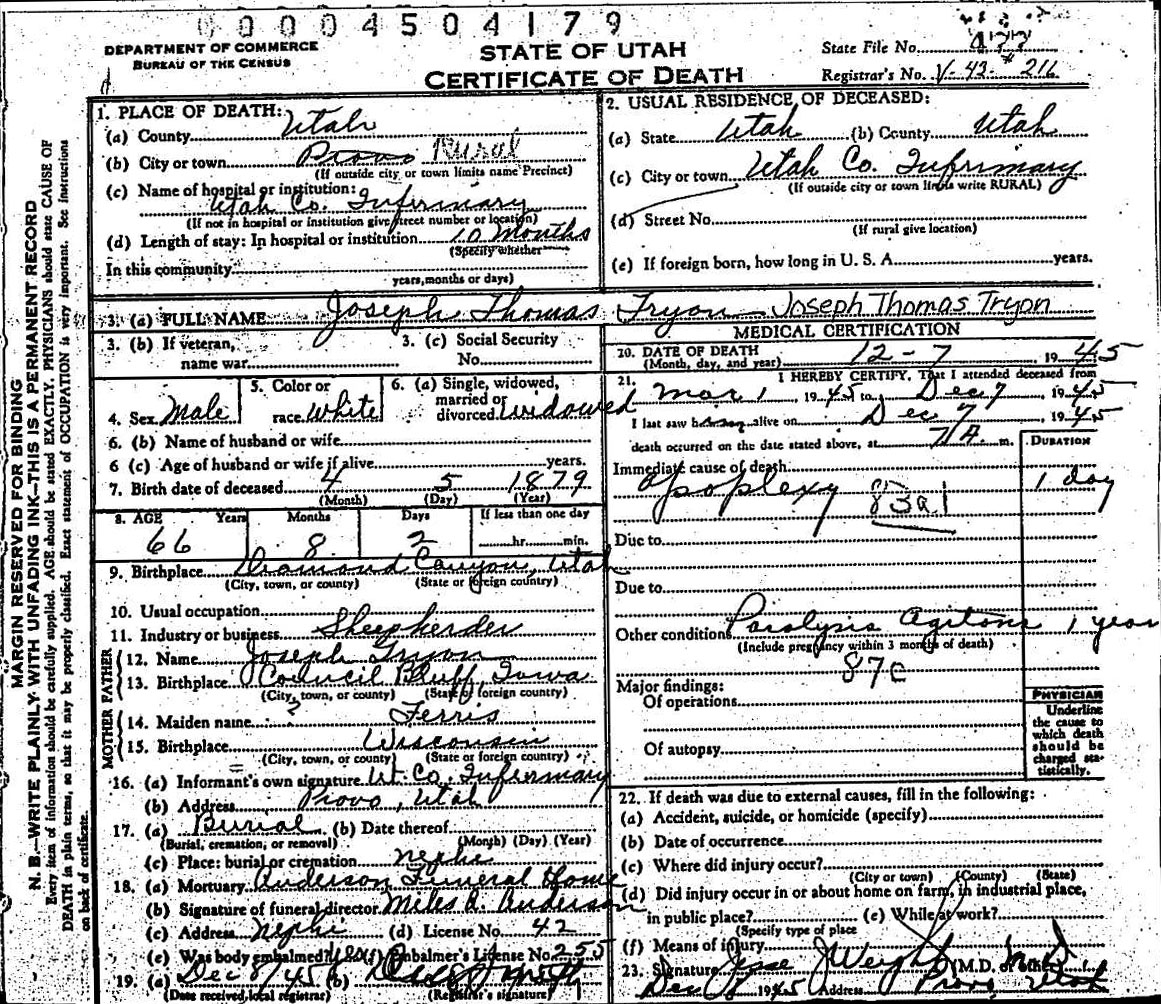 00004504179
DEPARTMENT OF COMMERCE
BUREAU OF THE CENSUS
STATE OF UTAH
CERTIFICATE OF DEATH
State File No. 477
Registrar's No. V-43-216
MARGIN RESERVED FOR BINDING
N. B.—WRITE PLAINLY WITH UNFADING INK—THIS IS A PERMANENT RECORD
Every item of information should be carefully supplied. AGE should be stated EXACTLY. PHYSICIANS should state CAUSE OF
DEATH in plain terms, so that it may be properly classified. Exact statement of OCCUPATION is very important. See instructions
on back of certificate.
1. PLACE OF DEATH:
(a) County Utah
(b) City or town Provo Rural
(If outside city or town limits name Precinct)
(c) Name of hospital or institution:
Utah Co. Infirmary
(If not in hospital or institution give street number or location)
(d) Length of stay: In hospital or institution 10 Months
(Specify whether
In this community
years, months or days)
2. USUAL RESIDENCE OF DECEASED:
(a) State Utah (b) County Utah
(c) City or town Utah Co. Infirmary
(If outside city or town limits write RURAL)
(d) Street No.
(If rural give location)
(e) If foreign born, how long in U. S. A. years.
3. (a) FULL NAME Joseph Thomas Tryon Joseph Thomas Tryon
3. (b) If veteran, name war
3. (c) Social Security No.
4. Sex Male
5. Color or race White
6. (a) Single, widowed, married or divorced widowed
6. (b) Name of husband or wife
6 (c) Age of husband or wife if alive years.
7. Birth date of deceased 4 5 1879
(Month) (Day) (Year)
8. AGE Years Months Days If less than one day
66 8 2 hr. min.
9. Birthplace Diamond Canyon, Utah
(City, town, or county) (State or foreign country)
10. Usual occupation
11. Industry or business Sheepherder
FATHER
12. Name Joseph Tryon
13. Birthplace Council Bluff, Iowa
(City, town, or county) (State or foreign country)
MOTHER
14. Maiden name ? Ferris
15. Birthplace Wisconsin
(City, town, or county) (State or foreign country)
16. (a) Informant's own signature Ut Co. Infirmary
(b) Address Provo, Utah
17. (a) Burial (b) Date thereof
(Burial, cremation, or removal) (Month) (Day) (Year)
(c) Place: burial or cremation Nephi
18. (a) Mortuary Anderson Funeral Home
(b) Signature of funeral director Miles A. Anderson
(c) Address Nephi (d) License No. 42
(e) Was body embalmed? Yes (f) Embalmer's License No. 255
19. (a) Dec 8/45 (b)
(Date received local registrar) (Registrar's signature)
MEDICAL CERTIFICATION
20. DATE OF DEATH 12-7, 1945
(Month, day, and year)
21. I HEREBY CERTIFY, That I attended deceased from
Mar 1, 1945 to Dec 7, 1945
I last saw him alive on Dec 7, 1945
death occurred on the date stated above, at 7 A. m.
DURATION
Immediate cause of death
Apoplexy 83a1 1 day
Due to
Due to
Other conditions Paralysis Agitans 1 year
(Include pregnancy within 3 months of death)
87c
Major findings:
Of operations
Of autopsy
PHYSICIAN
Underline
the cause to
which death
should be
charged sta-
tistically.
22. If death was due to external causes, fill in the following:
(a) Accident, suicide, or homicide (specify)
(b) Date of occurrence
(c) Where did injury occur?
(City or town) (County) (State)
(d) Did injury occur in or about home on farm, in industrial place,
in public place? (e) While at work?
(Specify type of place
(f) Means of injury
23. Signature Jesse J Weight M D (M.D. or other)
Dec 8 1945 Address Provo Utah